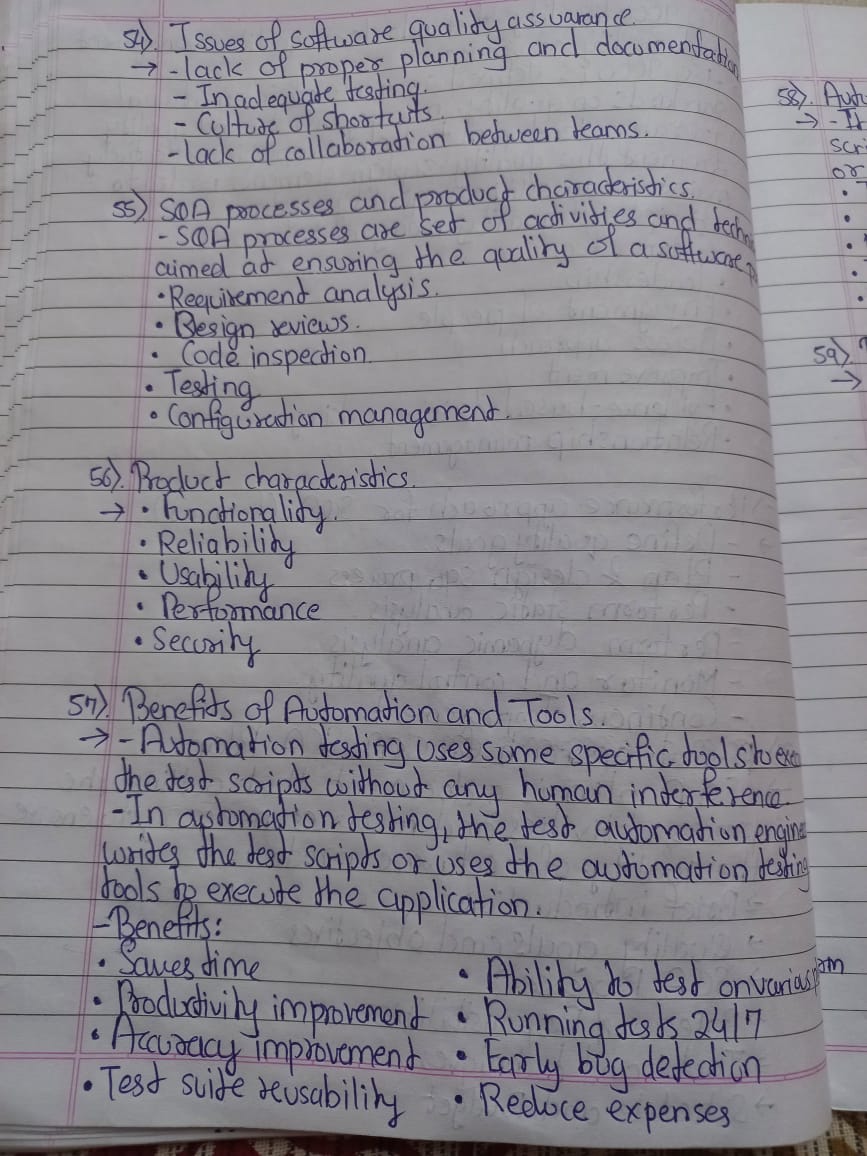 54). Issues of software quality assuarance.
→ - lack of proper planning and documentation
- Inadequate testing.
- Culture of shortcuts.
- lack of collaboration between teams.
55) SQA processes and product characteristics.
- SQA processes are set of activities and techn
aimed at ensuring the quality of a software p
• Requirement analysis.
• Design reviews.
• Code inspection
• Testing
• Configuration management.
56). Product characteristics.
→ • Functionality.
• Reliability
• Usability
• Performance
• Security
57). Benefits of Automation and Tools.
→ - Automation testing uses some specific tools to exe
the test scripts without any human interference.
- In automation testing, the test automation engine
writes the test scripts or uses the automation testing
tools to execute the application.
- Benefits:
• Saves time
• Productivity improvement
• Accuracy improvement
• Test suite reusability
• Ability to test on varias
• Running tests 24/7
• Early bug detection
• Reduce expenses
58). Aut
→ - It
scr
or
59)
→